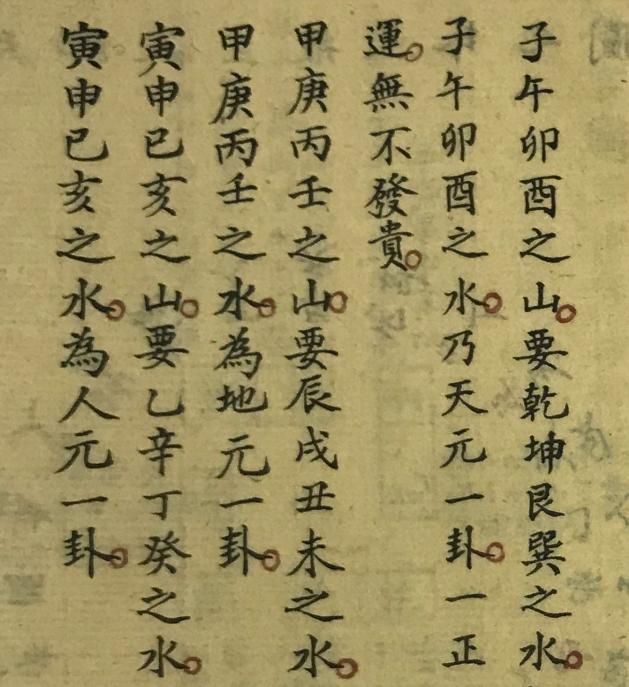 子午卯酉之山。要乾坤艮巽之水。
子午卯酉之水。乃天元一卦。一正
運。無不發貴。
甲庚丙壬之山。要辰戌丑未之水。
甲庚丙壬之水。為地元一卦。
寅申巳亥之山。要乙辛丁癸之水。
寅申巳亥之水。為人元一卦。